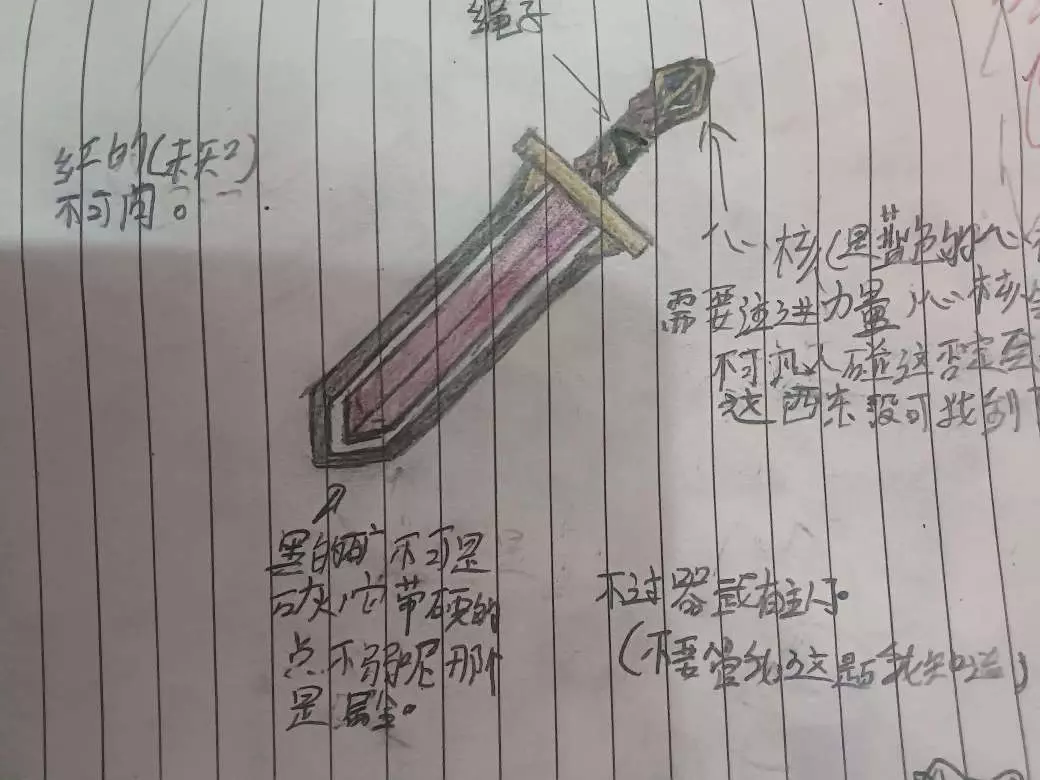 绳子
红的(未知?)
不可肉。
心核(是蓝色的心
需要送进力量,心核
不可凡人碰这否定
这西东没可找到
黑的矿不可是
石灰,它带硬的
点不弱呢那个
是属金。
不过器武有主人。
(不要管我这是我知道)